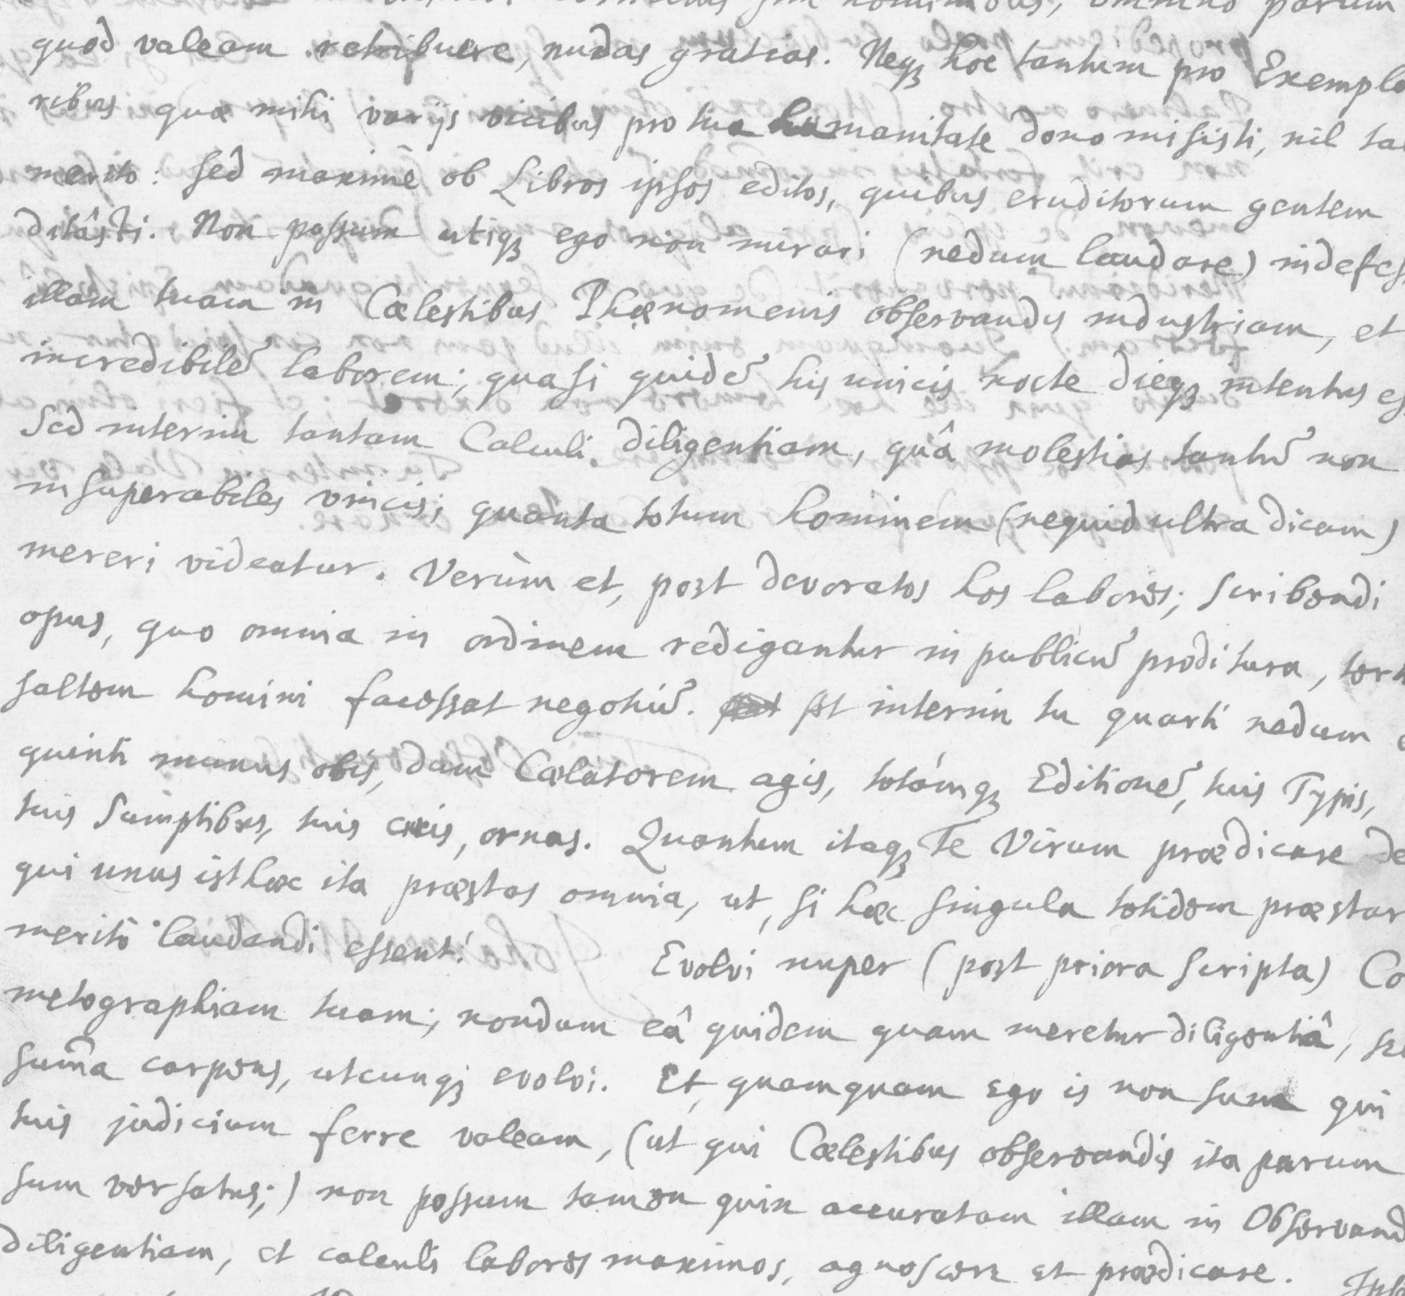 quod valeam retribuere, nudas gratias. Neqꝫ hoc tantum pro Exempla
ribus quæ mihi varijs vicibus pro tua humanitate dono misisti, nil tale
merito: sed maximè ob Libros ipsos editos, quibus eruditorum gentem
ditâsti. Non possum utiqꝫ ego non mirari (nedum laudare) indefes
illam tuam in Cœlestibus Phænomenis observandis industriam, et
incredibilē laborem; quasi quidē his unicis nocte dieqꝫ intentus es
Sed interim tantam Calculi diligentiam, quâ molestias tantū non
insuperabiles vincis; quanta totum hominem (nequid ultra dicam)
mereri videatur. Verùm et, post devoratos hos labores; scribendi
opus, quo omnia in ordinem redigantur in publicū proditura,
saltem homini facessat negotiū. Et interim tu quarti nedum
quinti munus obis, dum Cælatorem agis, totámqꝫ Editionē, tuis Typis,
tuis Sumptibus, tuis æris, ornas. Quantum itaqꝫ Te Virum prædicare de
qui unus isthæc ita præstas omnia, ut, si hæc singula totidem præstar
meritò laudandi essent! Evolvi nuper (post priora scripta) Co
metographiam tuam; nondum eâ quidem quam meretur diligentiâ, se
sum̄a carpens, utcunqꝫ evolvi. Et, quamquam ego is non sum qui
tuis judicium ferre valeam, (ut qui Cœlestibus observandis ita parum
sum versatus;) non possum tamen quin accuratam illam in Observand
diligentiam, et calculi labores maximos, agnoscere et prædicare.